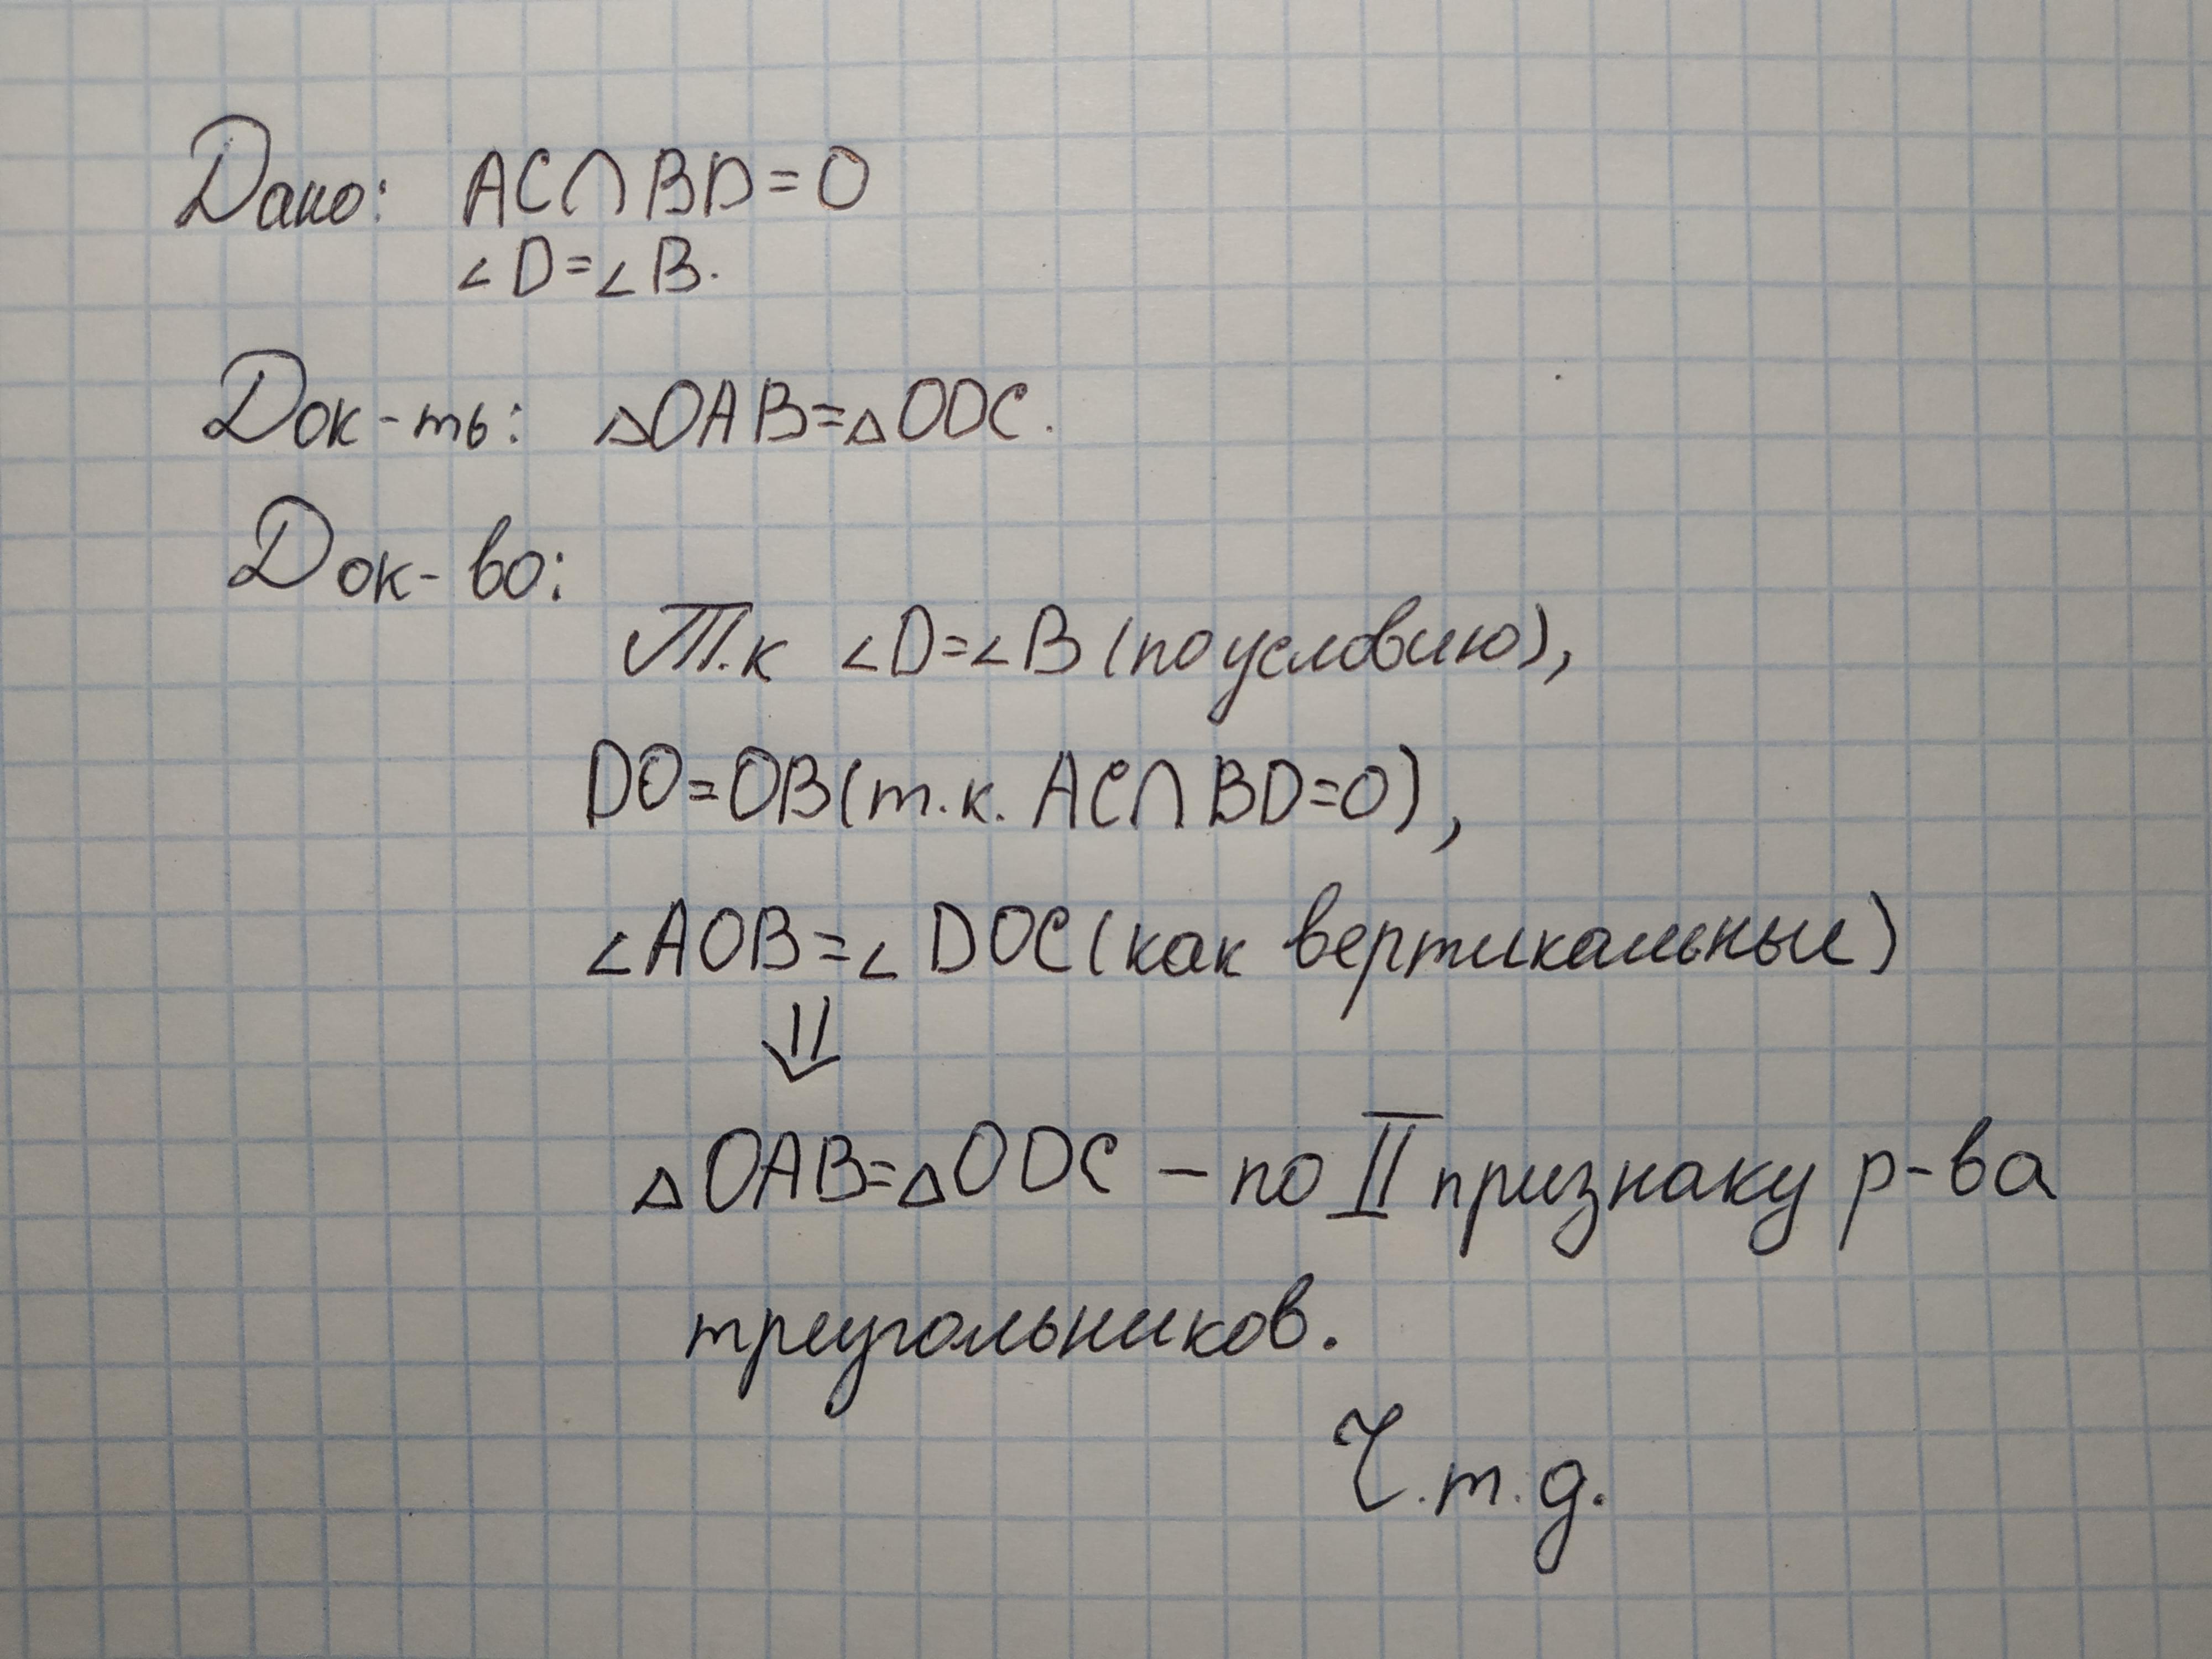 Дано: AC∩BD=O
∠D=∠B.
Док-ть: △OAB=△ODC.
Док-во:
Т.к ∠D=∠B (по условию),
DO=OB(т.к. AC∩BD=O),
∠AOB=∠DOC(как вертикальные)
⇓
△OAB=△ODC – по II признаку р-ва
треугольников.
Ч.т.д.